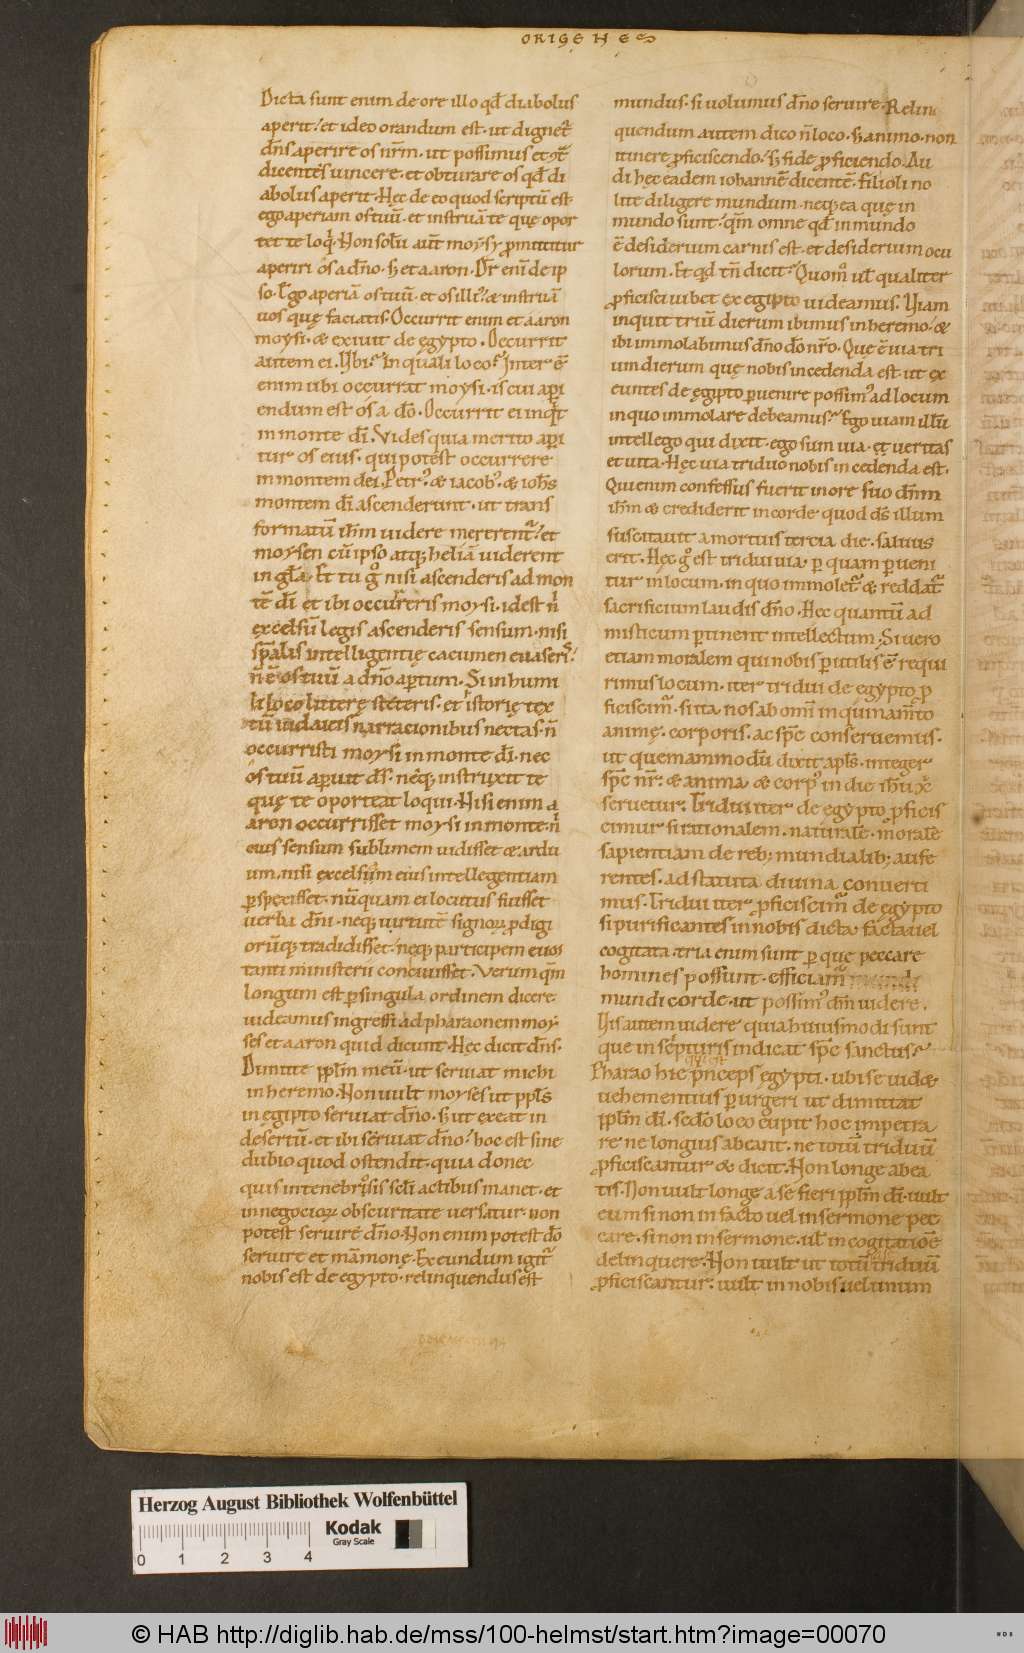 ORIGENES
Dicta sunt enim de ore illo qđ diabolus
aperit. et ideo orandum est. ut dignet᷑
dn̄s aperire os nr̄m. ut possimus et 9t̄
dicentes uincere. et obturare os qđ di
abolus aperit. Hęc de eo quod scriptū est.
ego aperiam os tuū. et instruā te quę opor
tet te loqͥ. Non solū aut̄ moysy ꝓmittitur
aperiri os a dn̄o. sꝫ et aaron. Dr̄ enī de ip
so. Ego aperiā os tuū. et os illiꝰ. & instruā
uos quę faciatis. Occurrit enim et aaron
moysi. & exiuit de ęgypto. Occurrit
autem ei. Vbi? In quali loco? Inter ē
enim ubi occurrat moysi. is cui aperi
endum est os a dō. Occurrit ei inqͥt
in monte dī. Vides quia merito aperi
tur os eius. qui potest occurrere
in montem dei. Petrꝰ & iacobꝰ & ioh̄s
montem dī ascenderunt. ut trans
formatū ih̄m uidere merent᷑. et
moysen cū ipso atqꝫ heliā uiderent
in gl̄a. Et tu gͦ nisi ascenderis ad mon
tē dī et ibi occurreris moysi. id est nͥ
excelsū legis ascenderis sensum. nisi
sp̄alis intelligentię cacumen euaserͥs.
n̄ ē os tuū a dn̄o aꝑtum. Si in humi
li loco litterę steteris. et istorię tex
tū iudaicis narracionibus nectas. n̄
occurristi moysi in monte dī. nec
os tuū aperuit ds̄. neqꝫ instruxit te
quę te oporteat loqui. Nisi enim a
aron occurrisset moysi in monte. nͥ
eius sensum sublimem uidisset & ardu
um. nisi excelsum eius intellegentiam
ꝑspęcisset. nūquam ei locutus fuisset
uerba dn̄i. neqꝫ uirtutē signoꝝ ꝓdigi
orūqꝫ tradidisset. neqꝫ participem euꝫ
tanti ministerii conciuisset. Verum qm̄
longum est ꝑ singula ordinem dicere.
uideamus ingressi ad pharaonem moy
ses et aaron quid dicunt. Hęc dicit dn̄s.
Dimitte ppl̄m meū. ut seruiat michi
in heremo. Non uult moyses ut ppl̄s
in ęgipto seruiat dn̄o. sꝫ ut exeat in
desertū. et ibi seruiat dn̄o. hoc est sine
dubio quod ostendit. quia donec
quis in tenebrosis scl̄i actibus manet. et
in negocioꝝ obscuritate uersatur. non
potest seruire dn̄o. Non enim potest dō
seruire et māmonę. Exeundum igit᷑
nobis est de ęgypto. relinquendus est
mundus. si uolumus dn̄o seruire. Relin
quendum autem dico n̄ loco. sꝫ animo. non
itinere ꝓficiscendo. sꝫ fide ꝓficiendo. Au
di hęc eadem iohannē dicentē. Filioli no
lite diligere mundum. neqꝫ ea quę in
mundo sunt. qm̄ omne qđ in mundo
ē desiderium carnis est. et desiderium ocu
lorum. Et qđ tn̄ dicit. Quomͦ uł qualiter
ꝓficisci iubet ex egipto uideamus. Viam
inquit triū dierum ibimus in heremo. &
ibi immolabimus dn̄o dō nr̄o. Quę ē uia tri
um dierum quę nobis incedenda est. ut ex
euntes de ęgipto ꝑuenire possimꝰ ad locum
in quo immolare debeamus? Ego uiam illū
intellego qui dixit. ego sum uia. et ueritas
et uita. Hęc uia triduo nobis incedenda est.
Qui enim confessus fuerit in ore suo dn̄m
ih̄m & crediderit in corde quod ds̄ illum
suscitauit a mortuis tercia die. saluus
erit. Hęc gͦ est tridui uia. ꝑ quam ꝑueni
tur in locum. in quo immolet᷑ & reddat᷑
sacrificium laudis dn̄o. Hęc quantū ad
misticum ꝑtinent intellectum. Si uero
etiam moralem qui nobis ꝑutilis ē requi
rimus locum. iter tridui de egypto ꝓ
ficiscim᷑. si ita nos ab om̄i inquinam̄to
animę. corporis. ac sp̄c conseruemus.
ut quemammodū dixit apl̄s. integer
sp̄c nr̄. & anima & corpꝰ in die ih̄u xͥ
seruetur. Tridui iter de egypto ꝓficis
cimur si rationalem. naturalē. moralē
sapientiam de rebꝫ mundialibꝫ aufe
rentes. ad statuta diuina conuerti
mus. Tridui iter ꝓficiscim᷑ de ęgypto
si purificantes in nobis dicta facta uel
cogitata. tria enim sunt ꝑ quę peccare
homines possunt. efficiam᷑
mundi corde. ut possimꝰ dm̄ uidere.
Vis autem uidere quia huiusmodi sunt
que in scripturis indicat sp̄c sanctus?
Pharao hic qui est prīnceps ęgypti. ubi se uid&
uehementius ꝑurgeri ut dimittat
ppl̄m dī. sedo loco cupit hoc impetra
re ne longius abeant. ne totū triduū
ꝓficiscantur & dicit. Non longe abea
tis. Non uult longe a se fieri ppl̄m dī. uult
eum si non in facto uel in sermone pec
care. si non in sermone. uł in cogitatiōe
delinquere. Non uult ut totū triduū
ꝓficiscantur. uult in nobis uel unum
Herzog August Bibliothek Wolfenbüttel
Kodak
Gray Scale
0 1 2 3 4
© HAB http://diglib.hab.de/mss/100-helmst/start.htm?image=00070